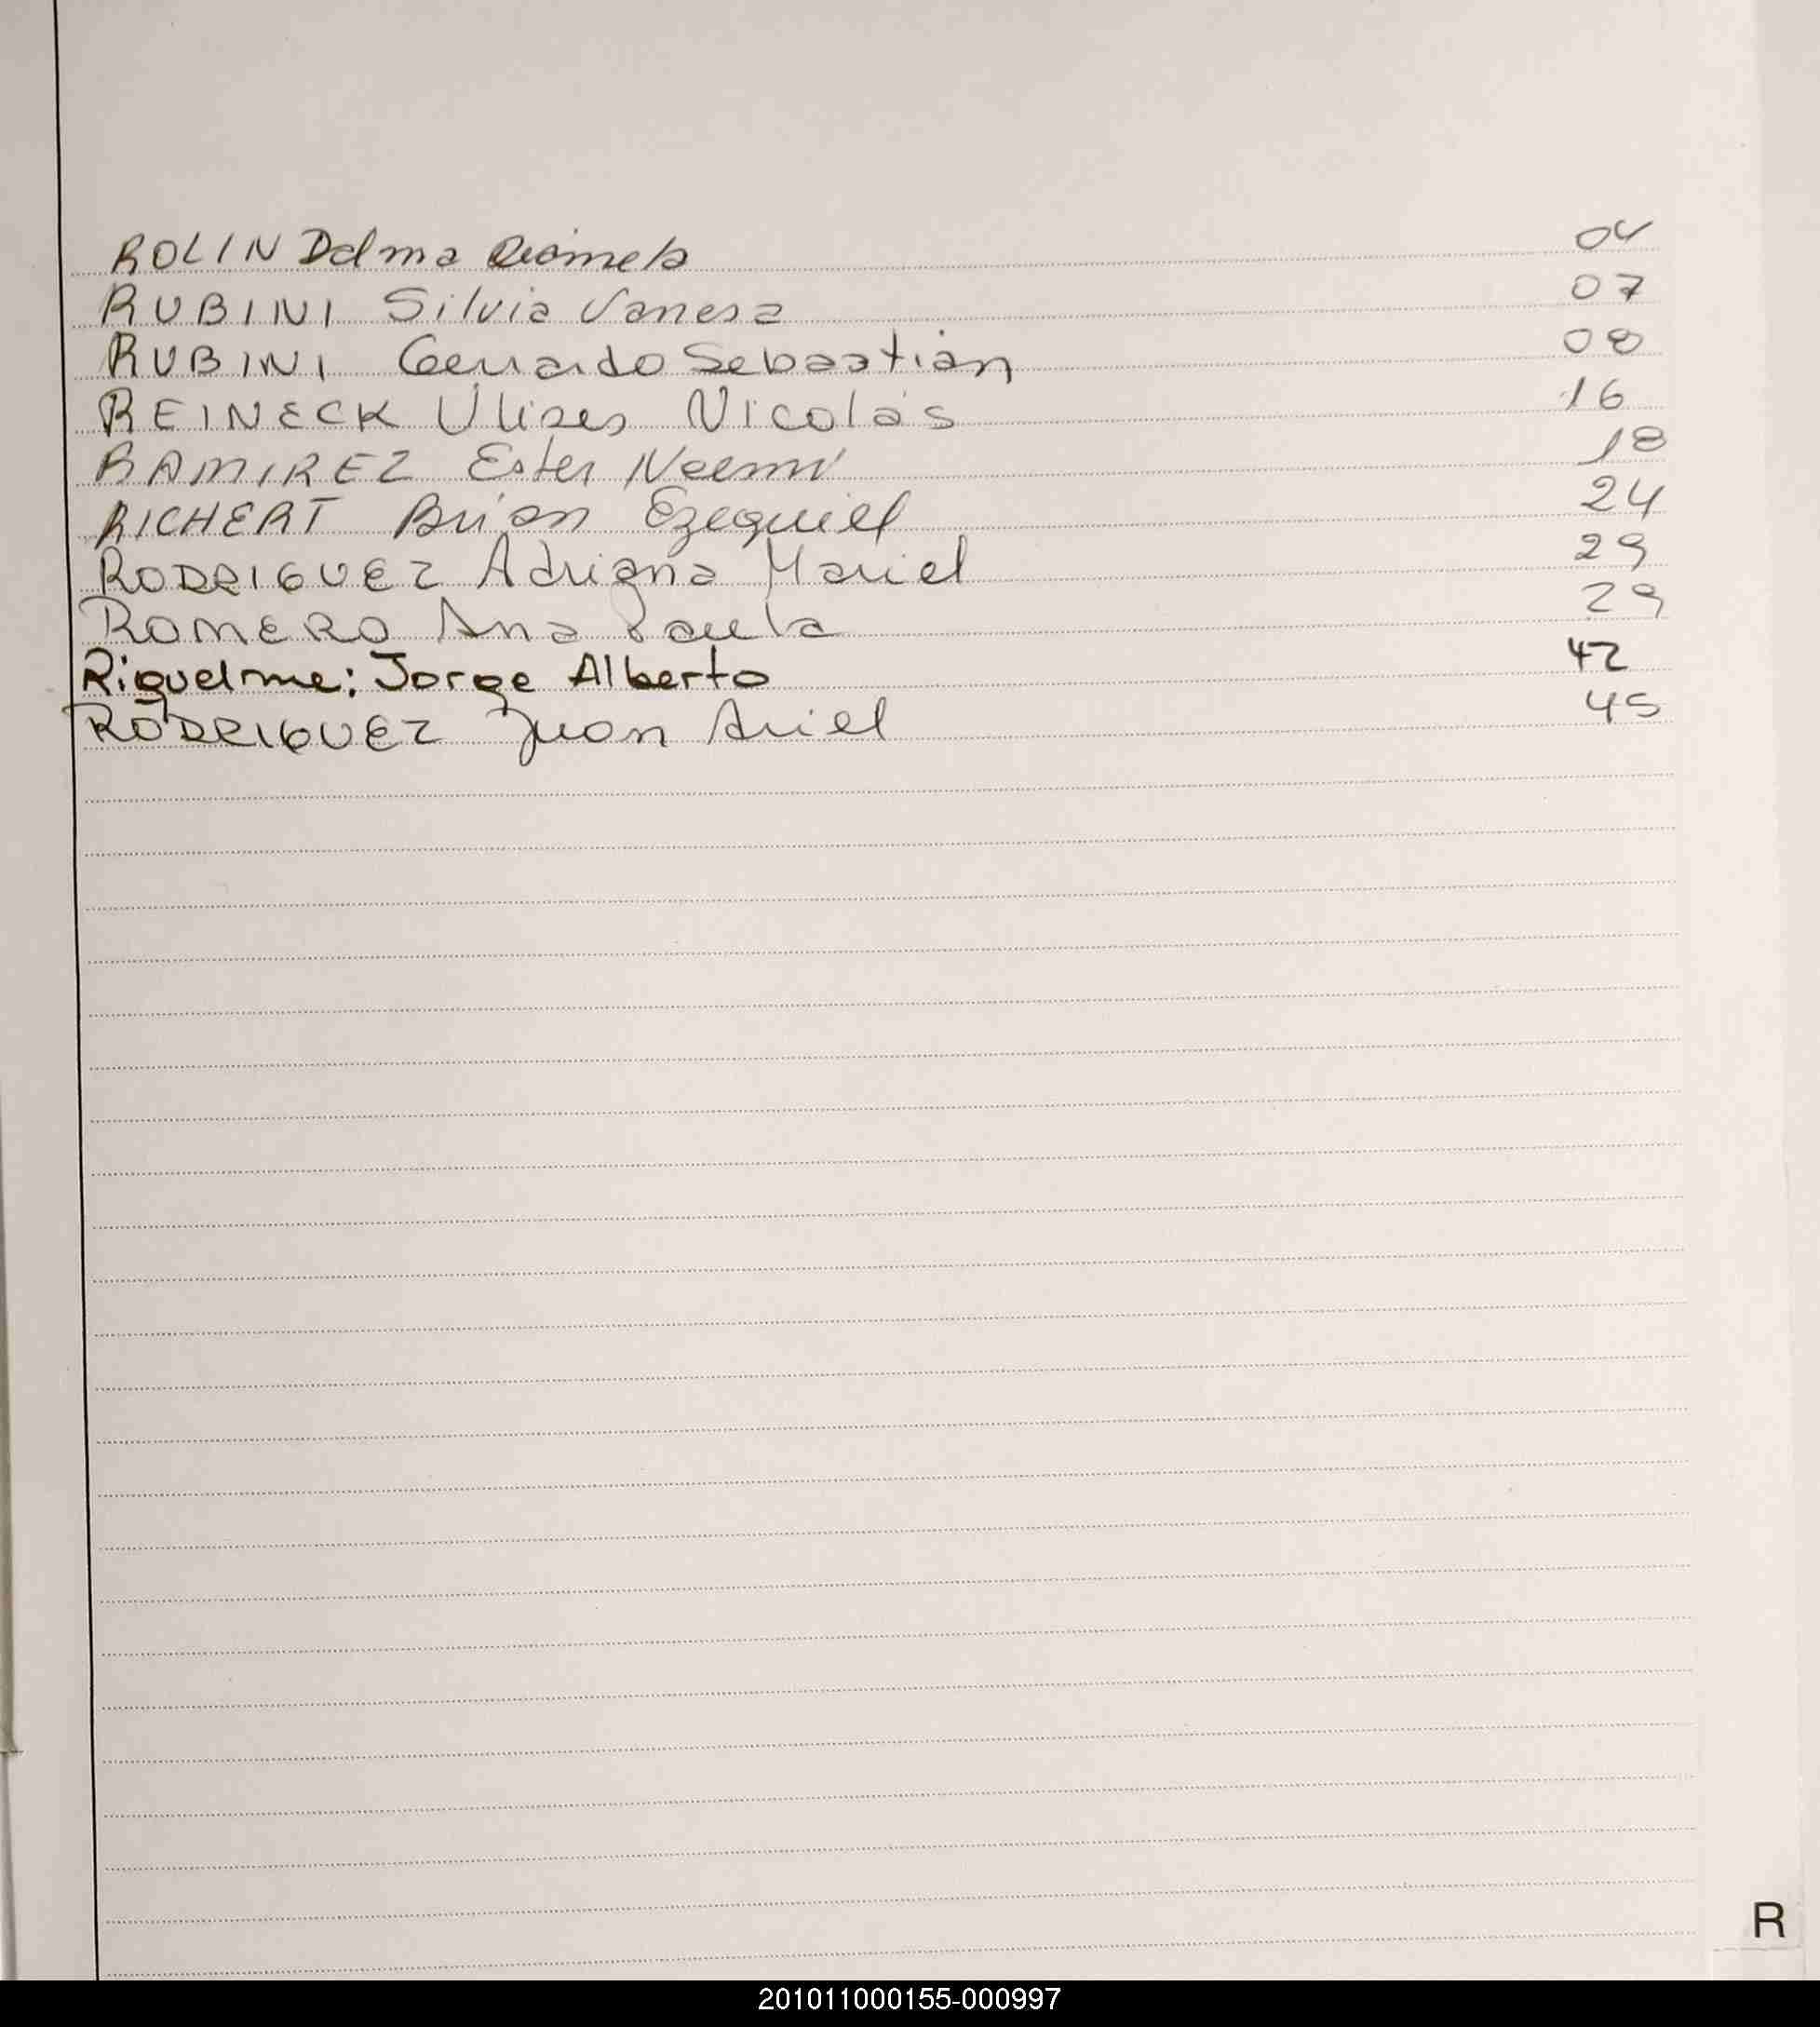 ROLIN Delma 04
RUBINI Silvia Vanesa 07
RUBINI Gerardo Sebastián 08
REINECK Ulises Nicolás 16
RAMIREZ Ester Noemí 18
RICHERT Brian Ezequiel 24
RODRIGUEZ Adriana Mariel 29
ROMERO Ana Paula 29
Riquelme: Jorge Alberto 42
RODRIGUEZ Juan Ariel 45
R
201011000155-000997